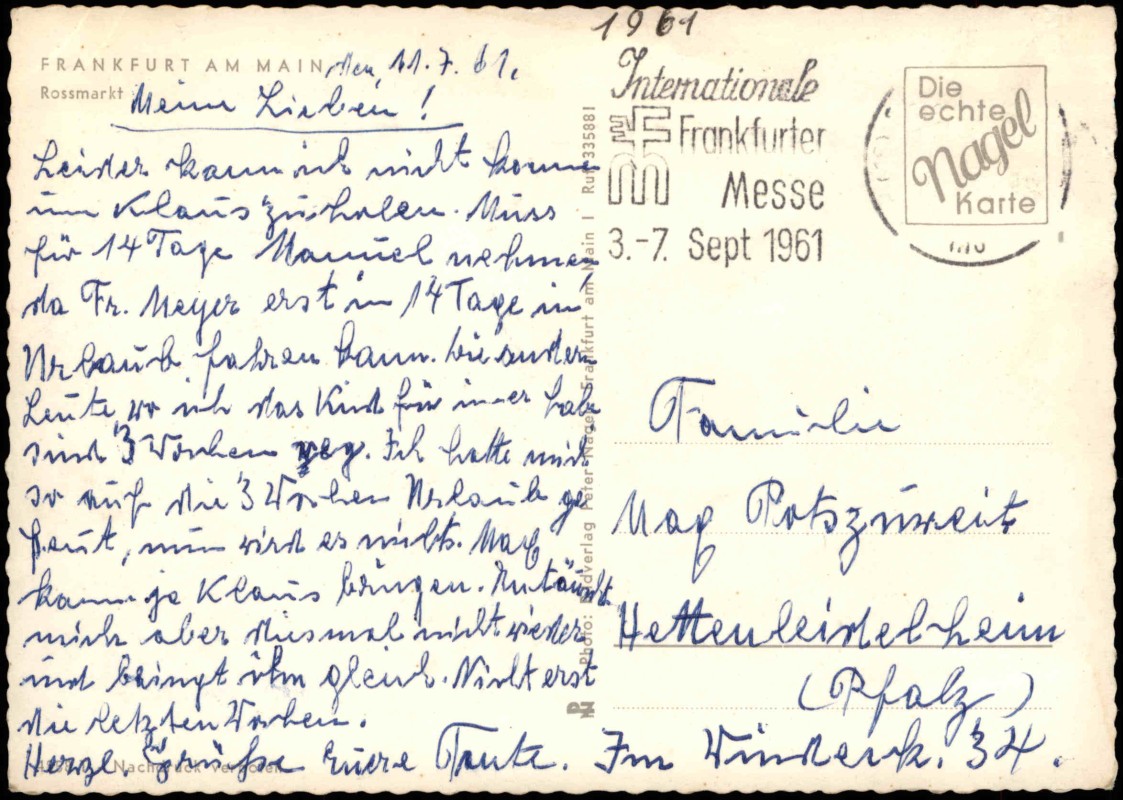 1961
FRANKFURT AM MAIN
Rossmarkt
den, 11.7.61.
Meine Lieben!
Leider kann ich nicht komme
um Klaus zu holen. Muss
für 14 Tage Manuel nehmen
da Fr. Meyer erst in 14 Tage in
Urlaub fahren kann. Die andern
Leute, wo ich das Kind für immer habe
sind 3 Wochen weg. Ich hatte mich
so auf die 3 Wochen Urlaub ge
freut, nun wird es nichts. Mag
kann ja Klaus bringen. Entäuscht
mich aber diesmal nicht wieder
und bringt ihn gleich. Nicht erst
die letzten Wochen.
Herzl. Grüße Eure Tante.
Nachdruck verboten
Photo: Bildverlag Peter Nagel Frankfurt am Main I Ruf 335881
Internationale
Frankfurter
Messe
3.-7. Sept 1961
Die
echte
Nagel
Karte
Familie
Mag Potszuweit
Hettenleidelheim
(Pfalz)
Im Winderck. 34.